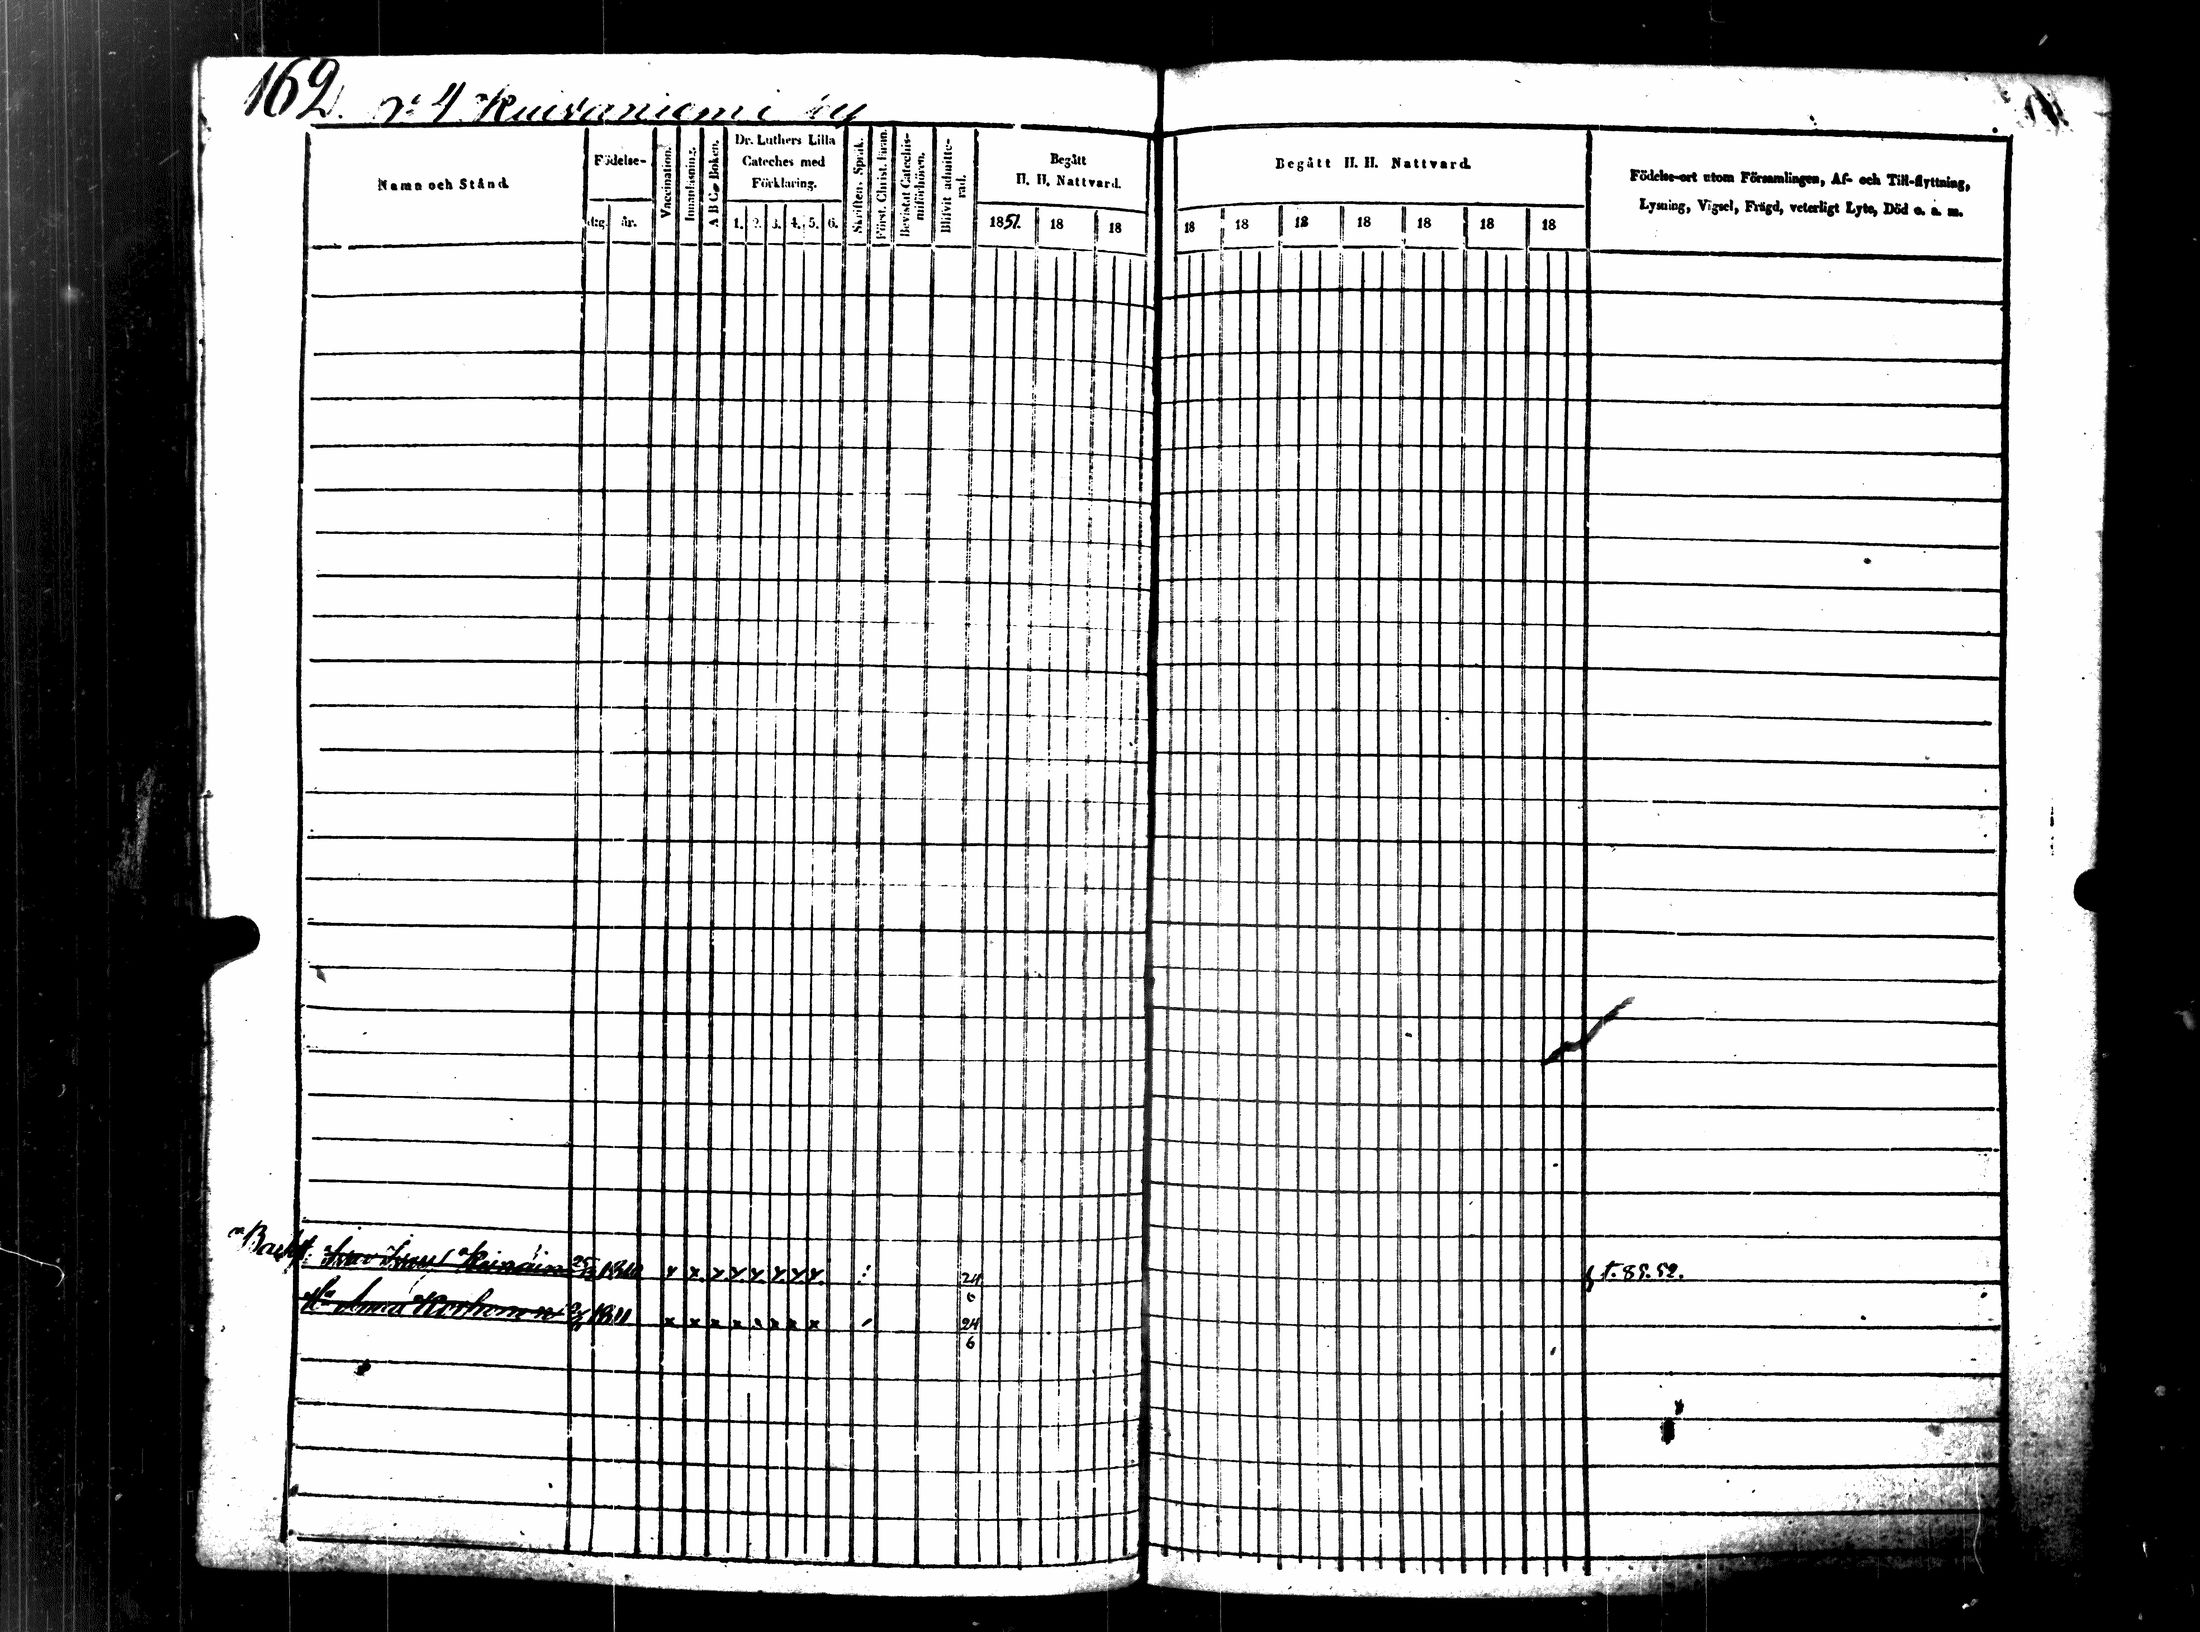 162. N:o 4 Kuivaniemi by
Namn och Stånd.
Födelse-
d:g. år.
Vaccination.
Innanläsning.
A B C-Boken.
Dr. Luthers Lilla
Cateches med
Förklaring.
1. 2. 3. 4. 5. 6.
Skriftens Språk.
Först. Christ. läran.
Bevistat Catechis-
miförhören.
Blifvit admitte-
rad.
Begått
H. H. Nattvard.
1851. 18 18
Begått H. H. Nattvard.
18 18 18 18 18 18 18
Födelse-ort utom Församlingen, Af- och Till-flyttning,
Lysning, Vigsel, Frägd, veterligt Lyte, Död o. a. m.
24
6
f. 85. 52.
Anna Korhonen 1811 x x x x x x x x
24
6